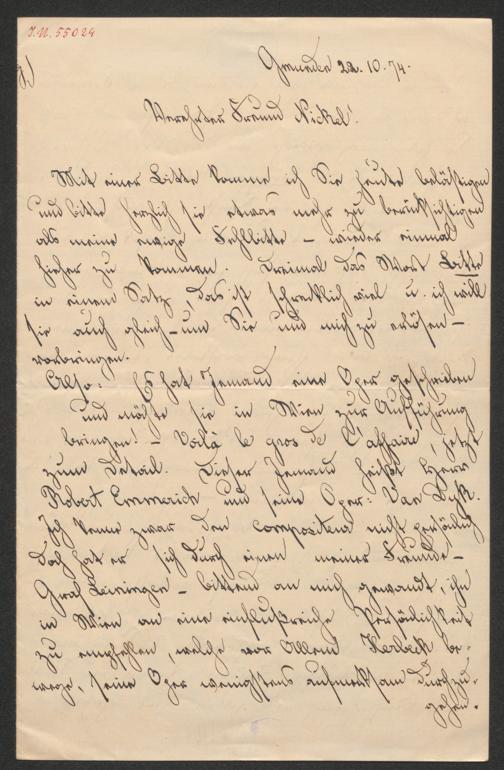 J.N. 55024
Gmunden 22. 10. 74.
Verehrter Freund Nickel!
Mit einer Bitte komme ich Sie heute belästigen
und bitte herzlich sie etwas mehr zu berücksichtigen
als meine ewige Fehlbitte – wieder einmal
hieher zu kommen. Dreimal das Wort Bitte
in einem Satz, das ist schrecklich viel u. ich will
sie auch gleich – um Sie und mich zu erlösen –
vorbringen.
Also: Es hat Jemand eine Oper geschrieben
und möchte sie in Wien zur Aufführung
bringen! – Voilà le gros de l'affaire, jetzt
zum Detail. Dieser Jemand heißt Herr
Robert Emmerich und seine Oper: Van Dyk.
Ich kenne zwar den compositeur nicht persönlich
doch hat er sich durch einen meiner Freunde –
Graf Leiningen – bittend an mich gewandt, ihn
in Wien an eine einflußreiche Persönlichkeit
zu empfehlen, welche vor Allem Herbeck be-
wege, seine Oper wenigstens aufmerksam durchzu-
gehen.